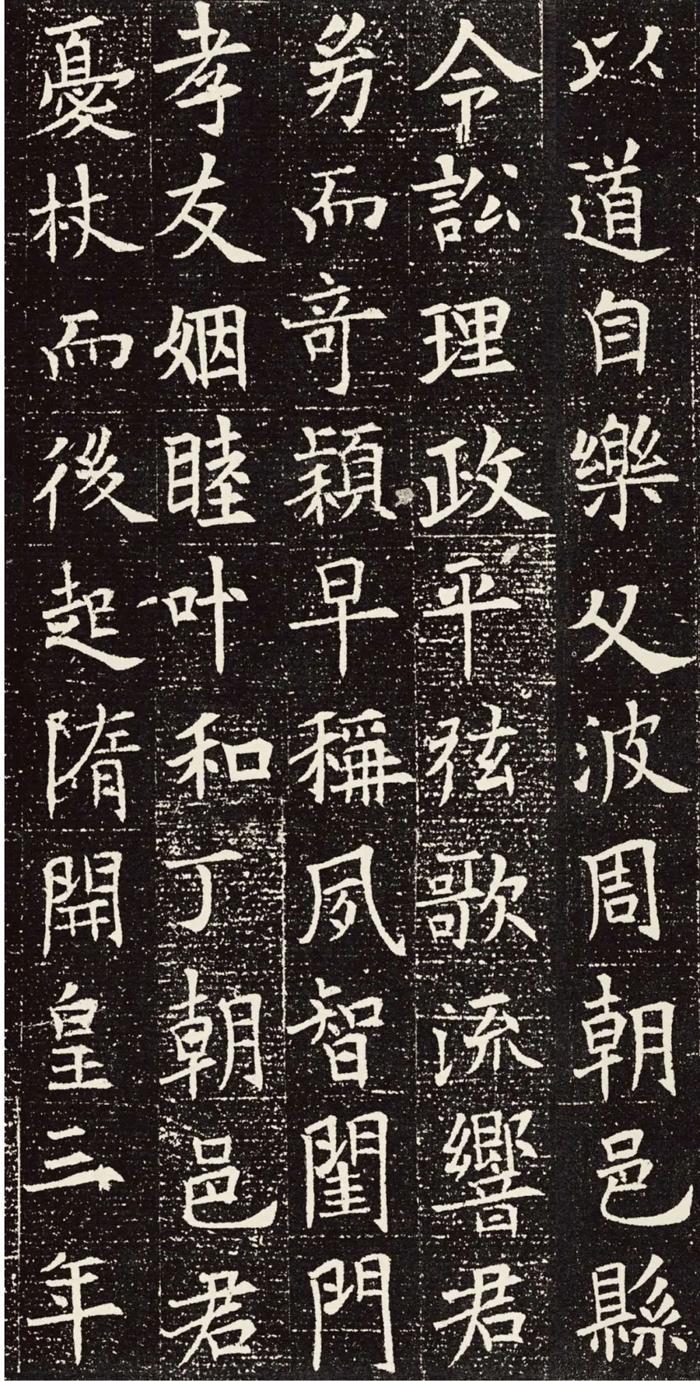 以道自樂父波周朝邑縣
令訟理政平弦歌流響君
幼而奇穎早稱夙智閨門
孝友姻睦叶和丁朝邑君
憂杖而後起隋開皇三年